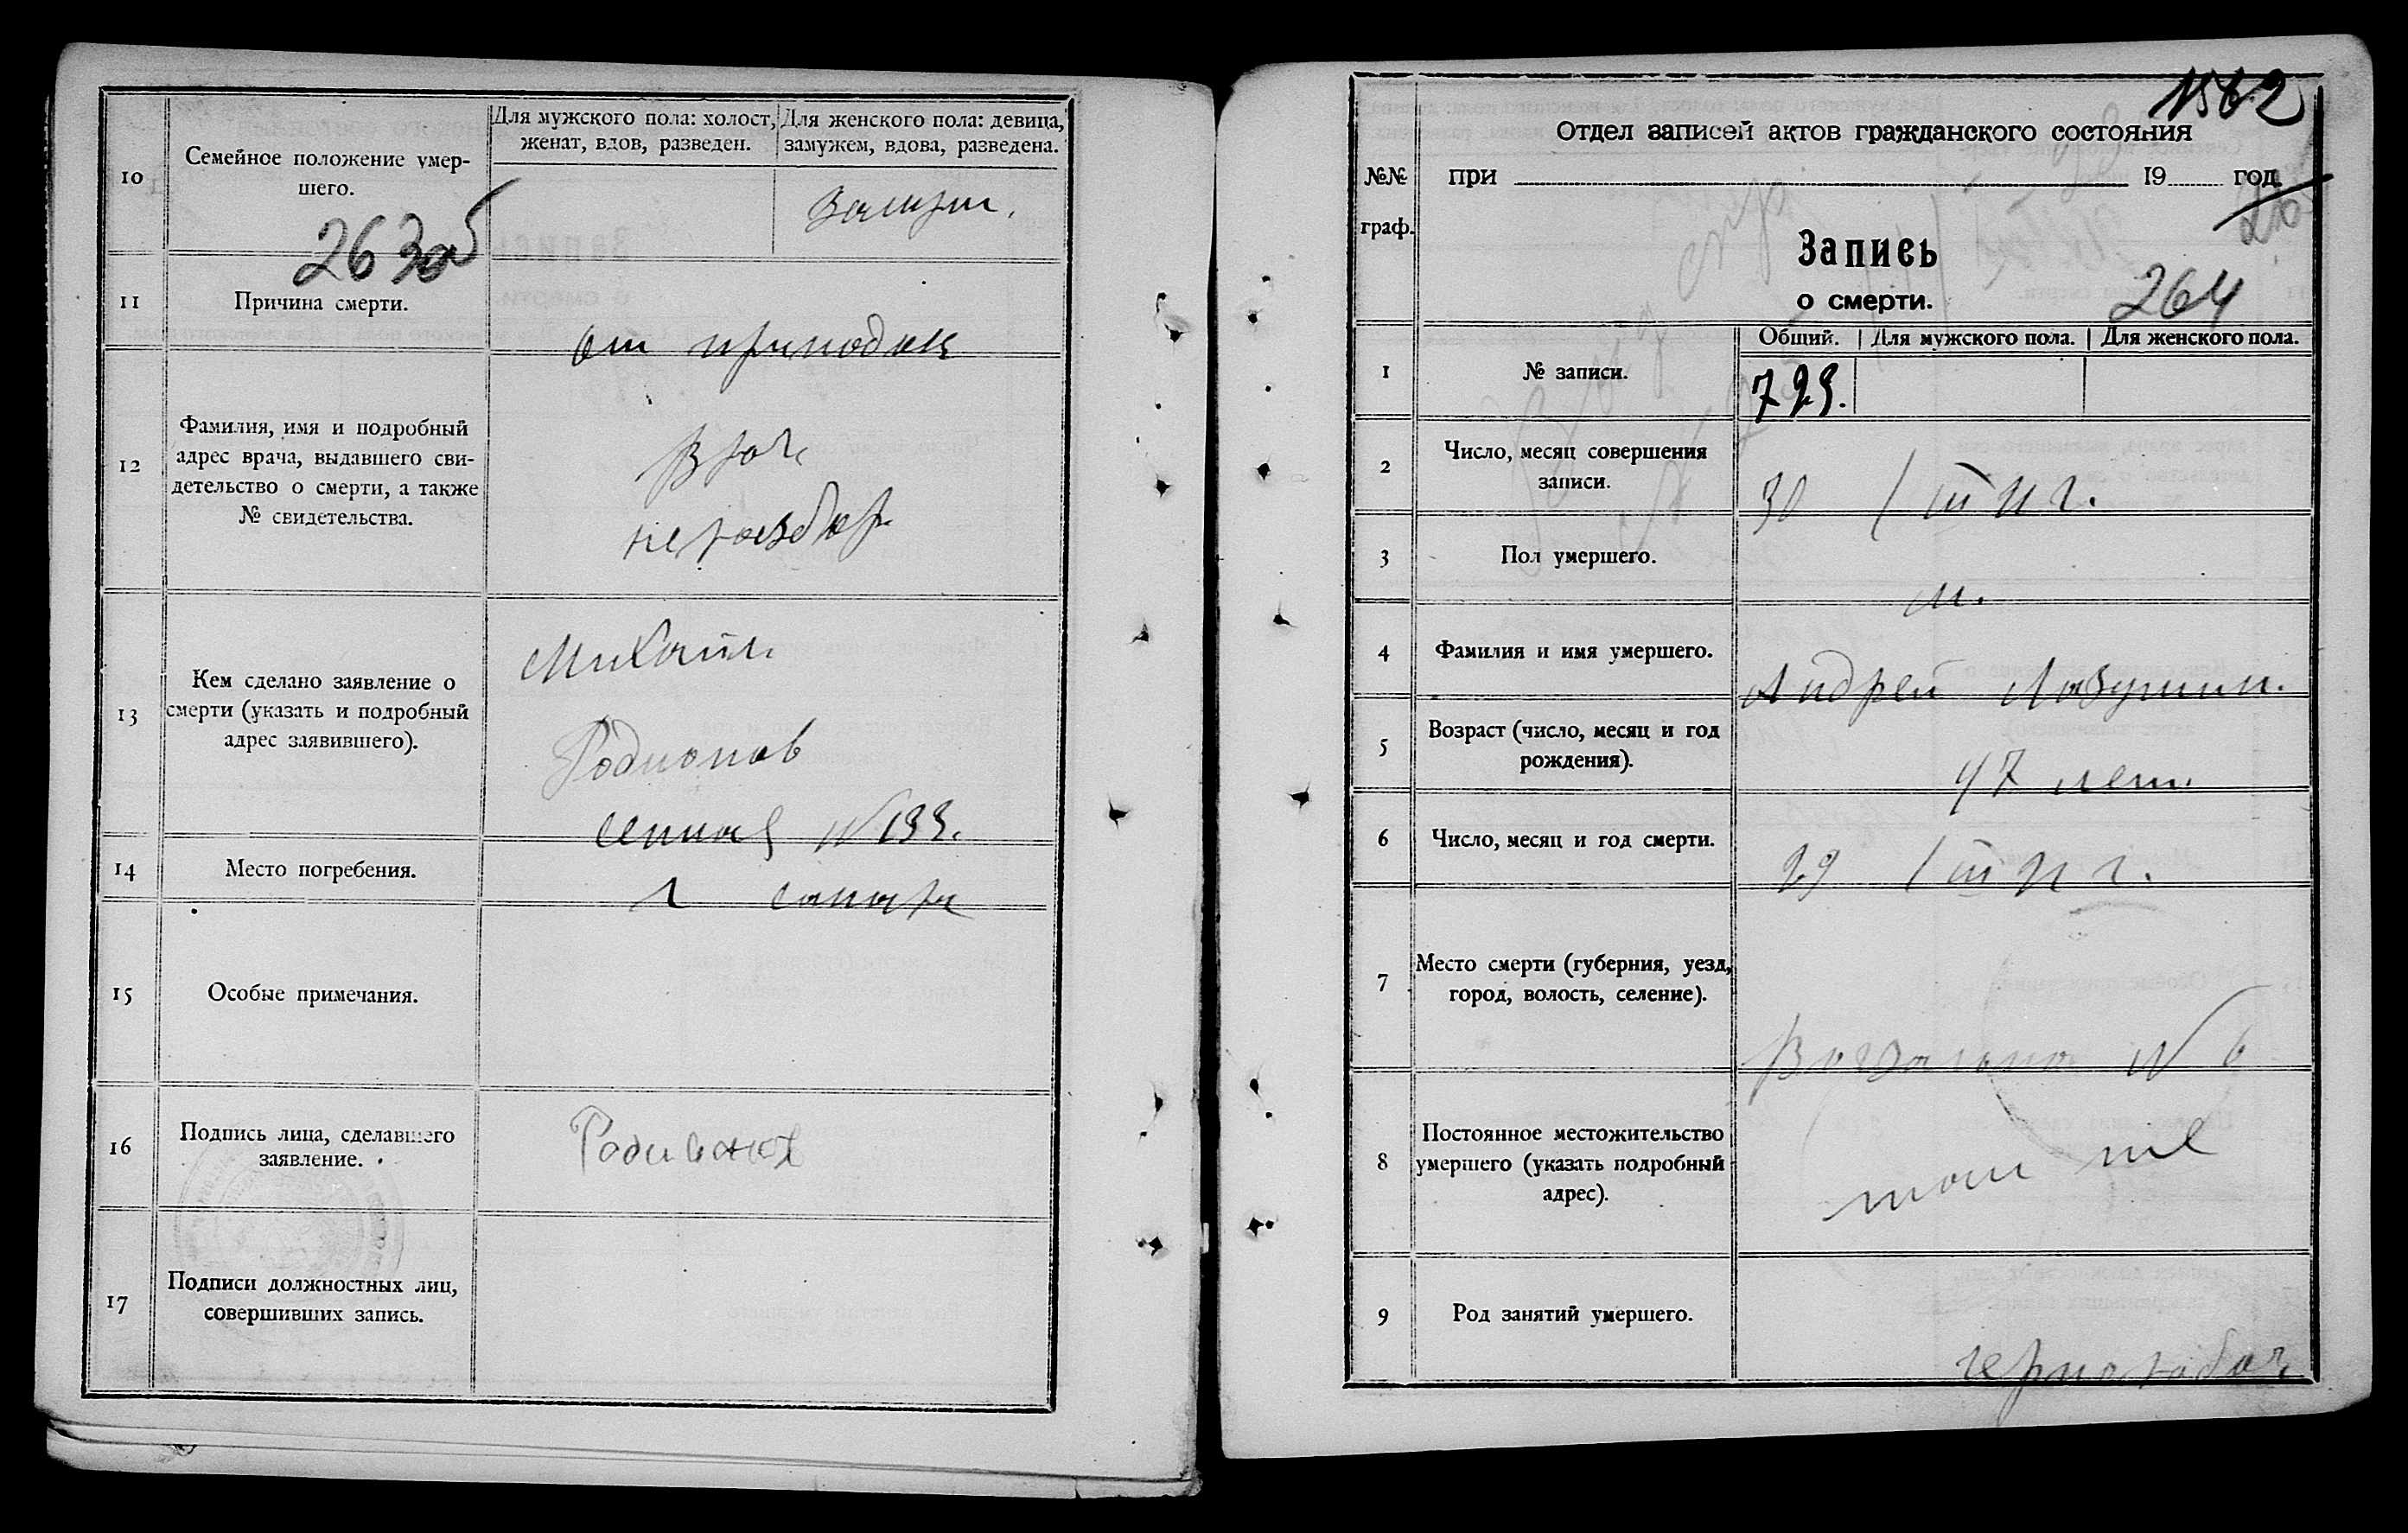 10
Семейное положение умер-
шего.
Для мужского пола: холост,
женат, вдов, разведен.
Для женского пола: девица,
замужем, вдова, разведена.
замужем.
263 об
11
Причина смерти.
от припадка
12
Фамилия, имя и подробный
адрес врача, выдавшего сви-
детельство о смерти, а также
№ свидетельства.
Врач
неразбор.
13
Кем сделано заявление о
смерти (указать и подробный
адрес заявившего).
Михаил
Родионов
Сенная № 133.
14
Место погребения.
15
Особые примечания.
16
Подпись лица, сделавшего
заявление.
Родионов
17
Подписи должностных лиц,
совершивших запись.
1562
№№
граф.
Отдел записей актов гражданского состояния
при 19 год.
Запись
о смерти.
264
1
№ записи.
Общий. Для мужского пола. Для женского пола.
729.
2
Число, месяц совершения
записи.
30 / III
3
Пол умершего.
м.
4
Фамилия и имя умершего.
Андрей Лазушин.
5
Возраст (число, месяц и год
рождения).
47 лет.
6
Число, месяц и год смерти.
29 / III
7
Место смерти (губерния, уезд,
город, волость, селение).
Вокзальная № 6
8
Постоянное местожительство
умершего (указать подробный
адрес).
там же
9
Род занятий умершего.
чернорабоч.